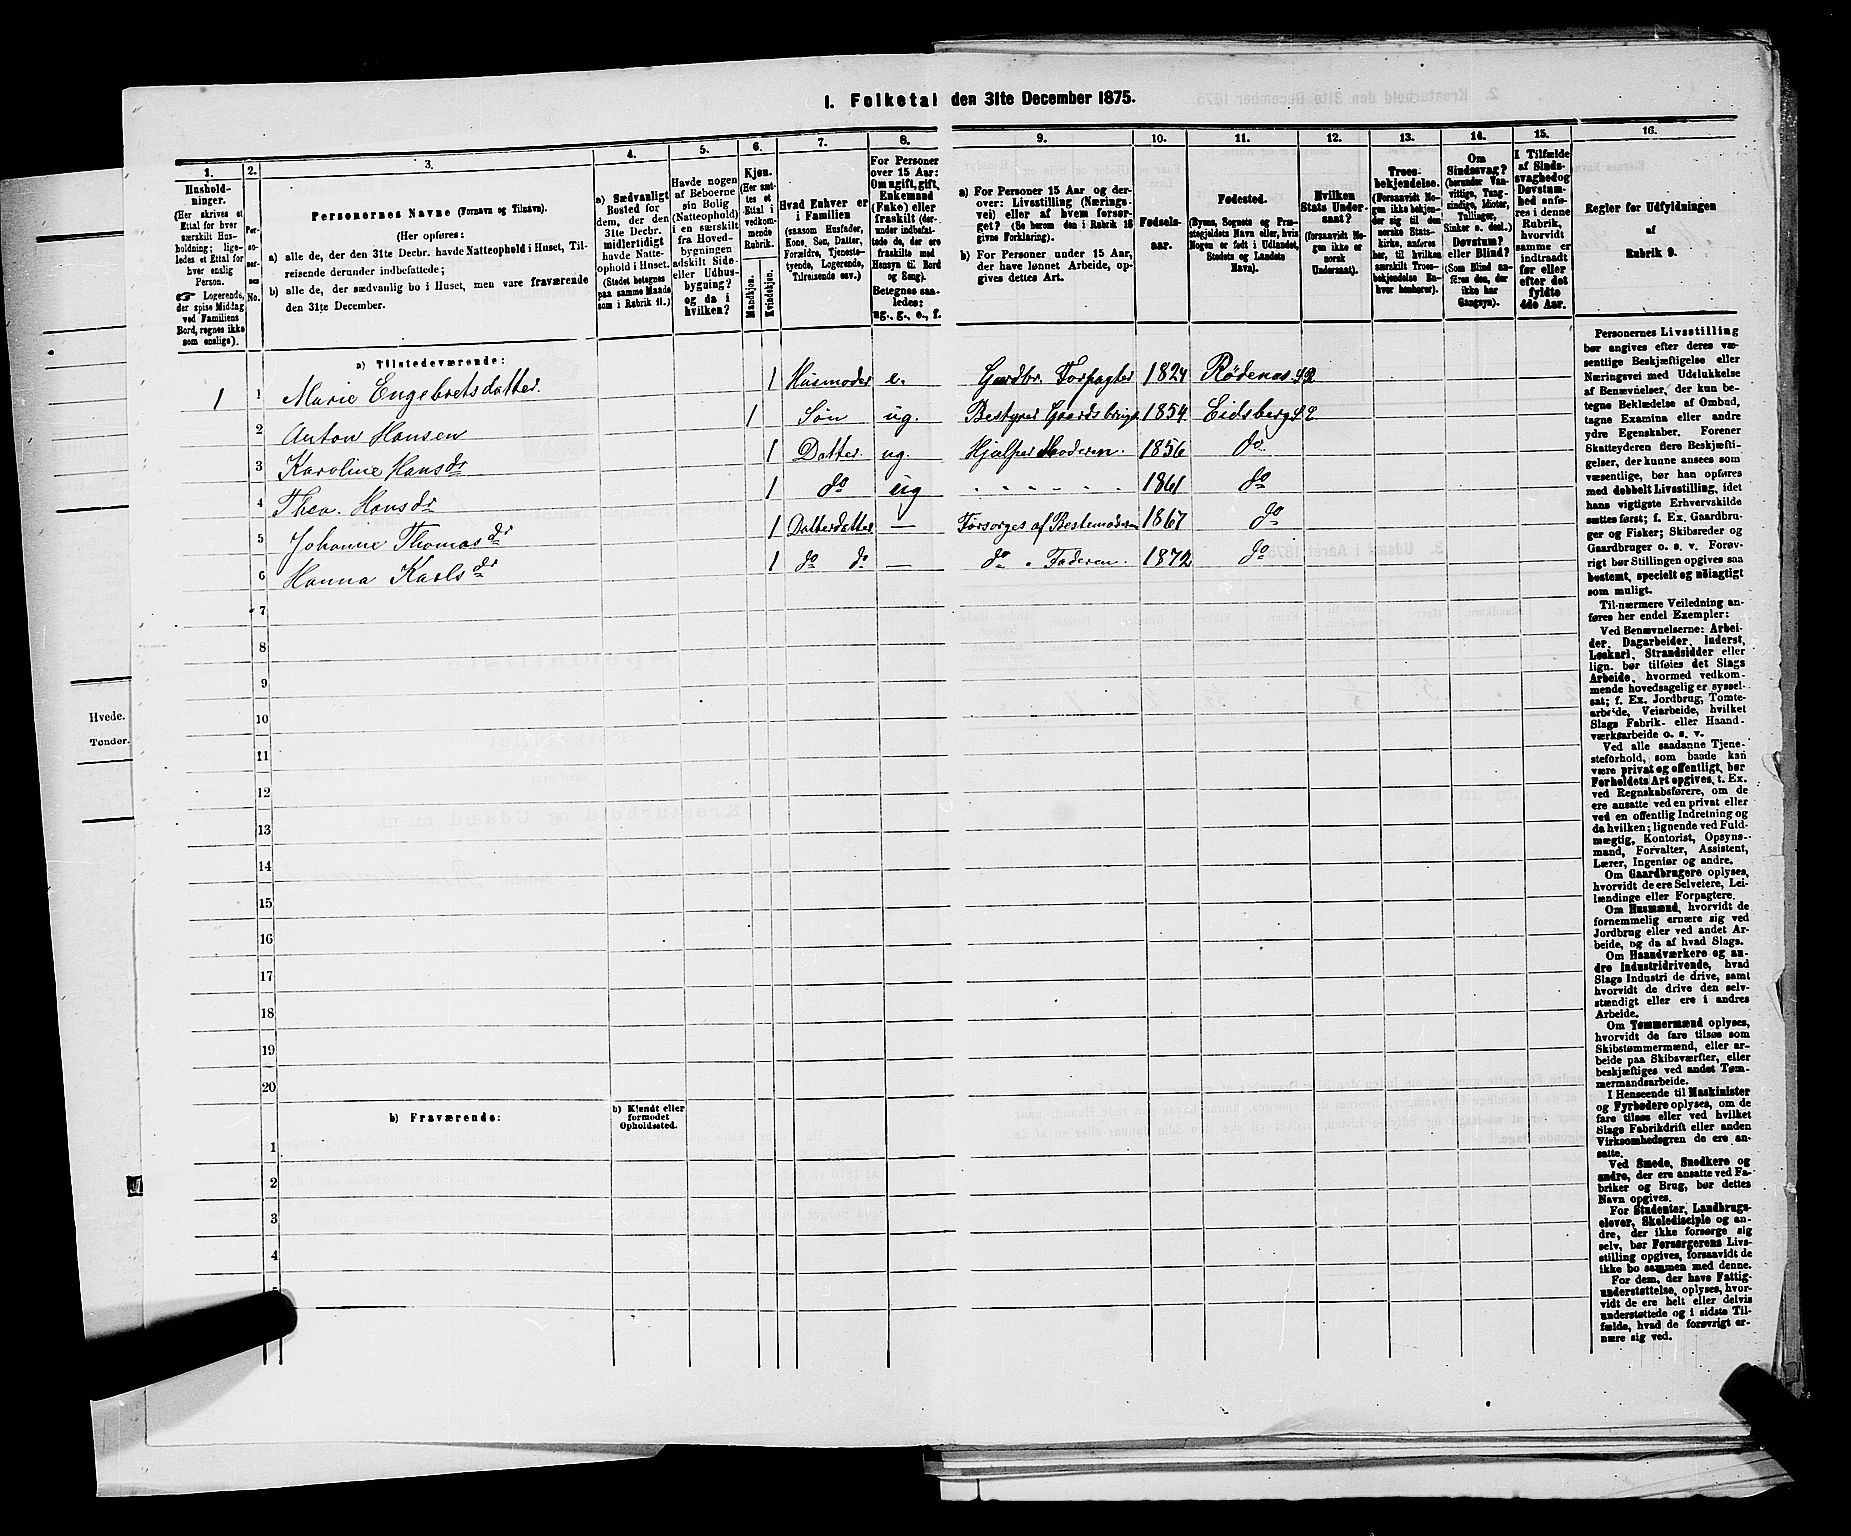 1. Folketal den 31te December 1875.
1. 2. 3. 4. 5. 6. 7. 8. 9. 10. 11. 12. 13. 14. 15. 16.
Husholdninger.
(Her skrives et
Ettal for hver
særskilt Husholdning; ligeledes
et Ettal for
hver enslig
Person.
☞ Logerende,
der spise Middag
ved Familiens
Bord, regnes ikke
som enslige).
Personernes No.
Personernes Navne (Fornavn og Tilnavn).
(Her opføres:
a) alle de, der den 31te Decbr. havde Natteophold i Huset, Tilreisende
derunder indbefattede;
b) alle de, der sædvanlig bo i Huset, men vare fraværende
den 31te December.
a) Sædvanligt
Bosted for
dem, der den
31te Decbr.
midlertidigt
havde Natteophold
i Huset.
(Stedet betegnes
paa samme Maade
som i Rubrik 11.)
Havde nogen
af Beboerne
sin Bolig
(Natteophold)
i en særskilt
fra Hovedbygningen
adskilt Side-
eller Udhusbygning?
og da i
hvilken?
Kjøn.
(Her sættes
et
Ettal i
vedkommende
Rubrik.
Mandkjøn.
Kvindekjøn.
Hvad Enhver er
i Familien
(saasom Husfader,
Kone, Søn, Datter,
Forældre, Tjenestetyende,
Logerende,
Tilreisende osv.)
For Personer
over 15 Aar:
Om ugift, gift,
Enkemand
(Enke) eller
fraskilt (derunder
indbefattede
de, der ere
fraskilte med
Hensyn til Bord
og Seng).
Betegnes saaledes:
ug., g., e., f.
a) For Personer 15 Aar og derover:
Livsstilling (Næringsvei)
eller af hvem forsørget?
(Se herom den i Rubrik 16
givne Forklaring).
b) For Personer under 15 Aar,
der have lønnet Arbeide, opgives
dettes Art.
Fødselsaar.
Fødested.
(Byens, Sognets og Præstegjeldets
Navn eller, hvis
Nogen er født i Udlandet,
Stedets og Landets
Navn).
Hvilken
Stats Undersaat?
(forsaavidt Nogen
ikke er
norsk
Undersaat).
Troesbekjendelse.
(Forsaavidt Nogen
ikke bekjender
sig til den
norske Statskirke,
anføres
her, til hvilken
særskilt Troesbekjendelse
Enhver
henhører).
Om
Sindssvag?
(herunder Vanvittige,
Tungsindige,
Idioter,
Tullinger,
Sinker o. desl.)
Døvstum?
eller Blind?
(Som Blind anføres
den, der
ikke har
Gangsyn).
I Tilfælde
af Sindssvaghed
og
Døvstumhed
anføres
i denne
Rubrik,
hvorvidt
samme er
indtraadt
før eller
efter det
fyldte
4de Aar.
Regler for Udfyldningen
af
Rubrik 9.
a) Tilstedeværende:
1 1 Marie Engebretsdatter. 1 Husmoder e. Gardbr. Forpagter 1824 Rødenæs
2 Anton Hansen 1 Søn ug. Bestyrer Gaardsbruget 1854 Eidsberg
3 Karoline Hansdr 1 Datter. ug. Hjælper Moderen. 1856 do
4 Thea. Hansdr 1 do ug - - - - - - 1861 do
5 Johanne Thomasdr 1 Datterdatter — Forsørges af Bestemoderen 1867 do
6 Hanna Karlsdr 1 do do — do " Faderen. 1872 do
7
8
9
10
11
12
13
14
15
16
17
18
19
20
b) Fraværende:
b) Kjendt eller
formodet
Opholdssted.
1
2
3
4
5
Personernes Livsstilling
bør angives efter deres væsentlige
Beskjæftigelse eller
Næringsvei med Udelukkelse
af Benævnelser, der kun betegne
Beklædelse af Ombud,
tagne Examina eller andre
ydre Egenskaber. Forener
Skatteyderen flere Beskjæftigelser,
der kunne ansees som
væsentlige, bør han opføres
med dobbelt Livsstilling, idet
hans vigtigste Erhvervskilde
sættes først; f. Ex. Gaardbruger
og Fisker; Skibsreder og
Gaardbruger o. s. v. Forøvrigt
bør Stillingen opgives saa
bestemt, specielt og nøiagtigt
som muligt.
Til nærmere Veiledning anføres
her endel Exempler:
Ved Benævnelserne: Arbeider,
Dagarbeider, Inderst,
Løskarl, Strandsidder eller
lign. bør tilføies det Slags
Arbeide, hvormed vedkommende
hovedsagelig er sysselsat;
f. Ex. Jordbrug, Tomtearbeide,
Veiarbeide, hvilket
Slags Fabrik- eller Haandværksarbeide
o. s. v.
Ved alle saadanne Tjenesteforhold,
som baade kan
være privat og offentligt, bør
Forholdets Art opgives, f. Ex.
ved Regnskabsførere, om de
ere ansatte ved en privat eller
ved en offentlig Indretning og
da hvilken; lignende ved Fuldmægtig,
Kontorist, Opsynsmand,
Forvalter, Assistent,
Lærer, Ingeniør og andre.
Om Gaardbrugere oplyses,
hvorvidt de ere Selveiere, Leilændinge
eller Forpagtere.
Om Husmænd, hvorvidt de
fornemmelig ernære sig ved
Jordbrug eller ved andet Arbeide,
og da af hvad Slags.
Om Haandværkere og andre
Industridrivende, hvad
Slags Industri de drive, samt
hvorvidt de drive den selvstændigt
eller ere i andres
Arbeide.
Om Tømmermænd oplyses,
hvorvidt de fare tilsøs som
Skibstømmermænd, eller arbeide
paa Skibsværfter, eller
beskjæftiges ved andet Tømmermandsarbeide.
I Henseende til Maskinister
og Fyrbødere oplyses, om de
fare tilsøs eller ved hvilket
Slags Fabrikdrift eller anden
Virksomhedsgren de ere ansatte.
Ved Smede, Snedkere og
andre, der ere ansatte ved Fabriker
og Brug, bør dettes
Navn opgives.
For Studenter, Landbrugselever,
Skoledisciple og andre,
der ikke forsørge sig
selv, bør Forsørgerens Livsstilling
opgives, forsaavidt de
ikke bo sammen med denne.
For dem, der have Fattigunderstøttelse,
oplyses, hvorvidt
de ere helt eller delvis
understøttede og i sidste Tilfælde,
hvad de forøvrigt ernære
sig ved.
Hvede.
Tønder.